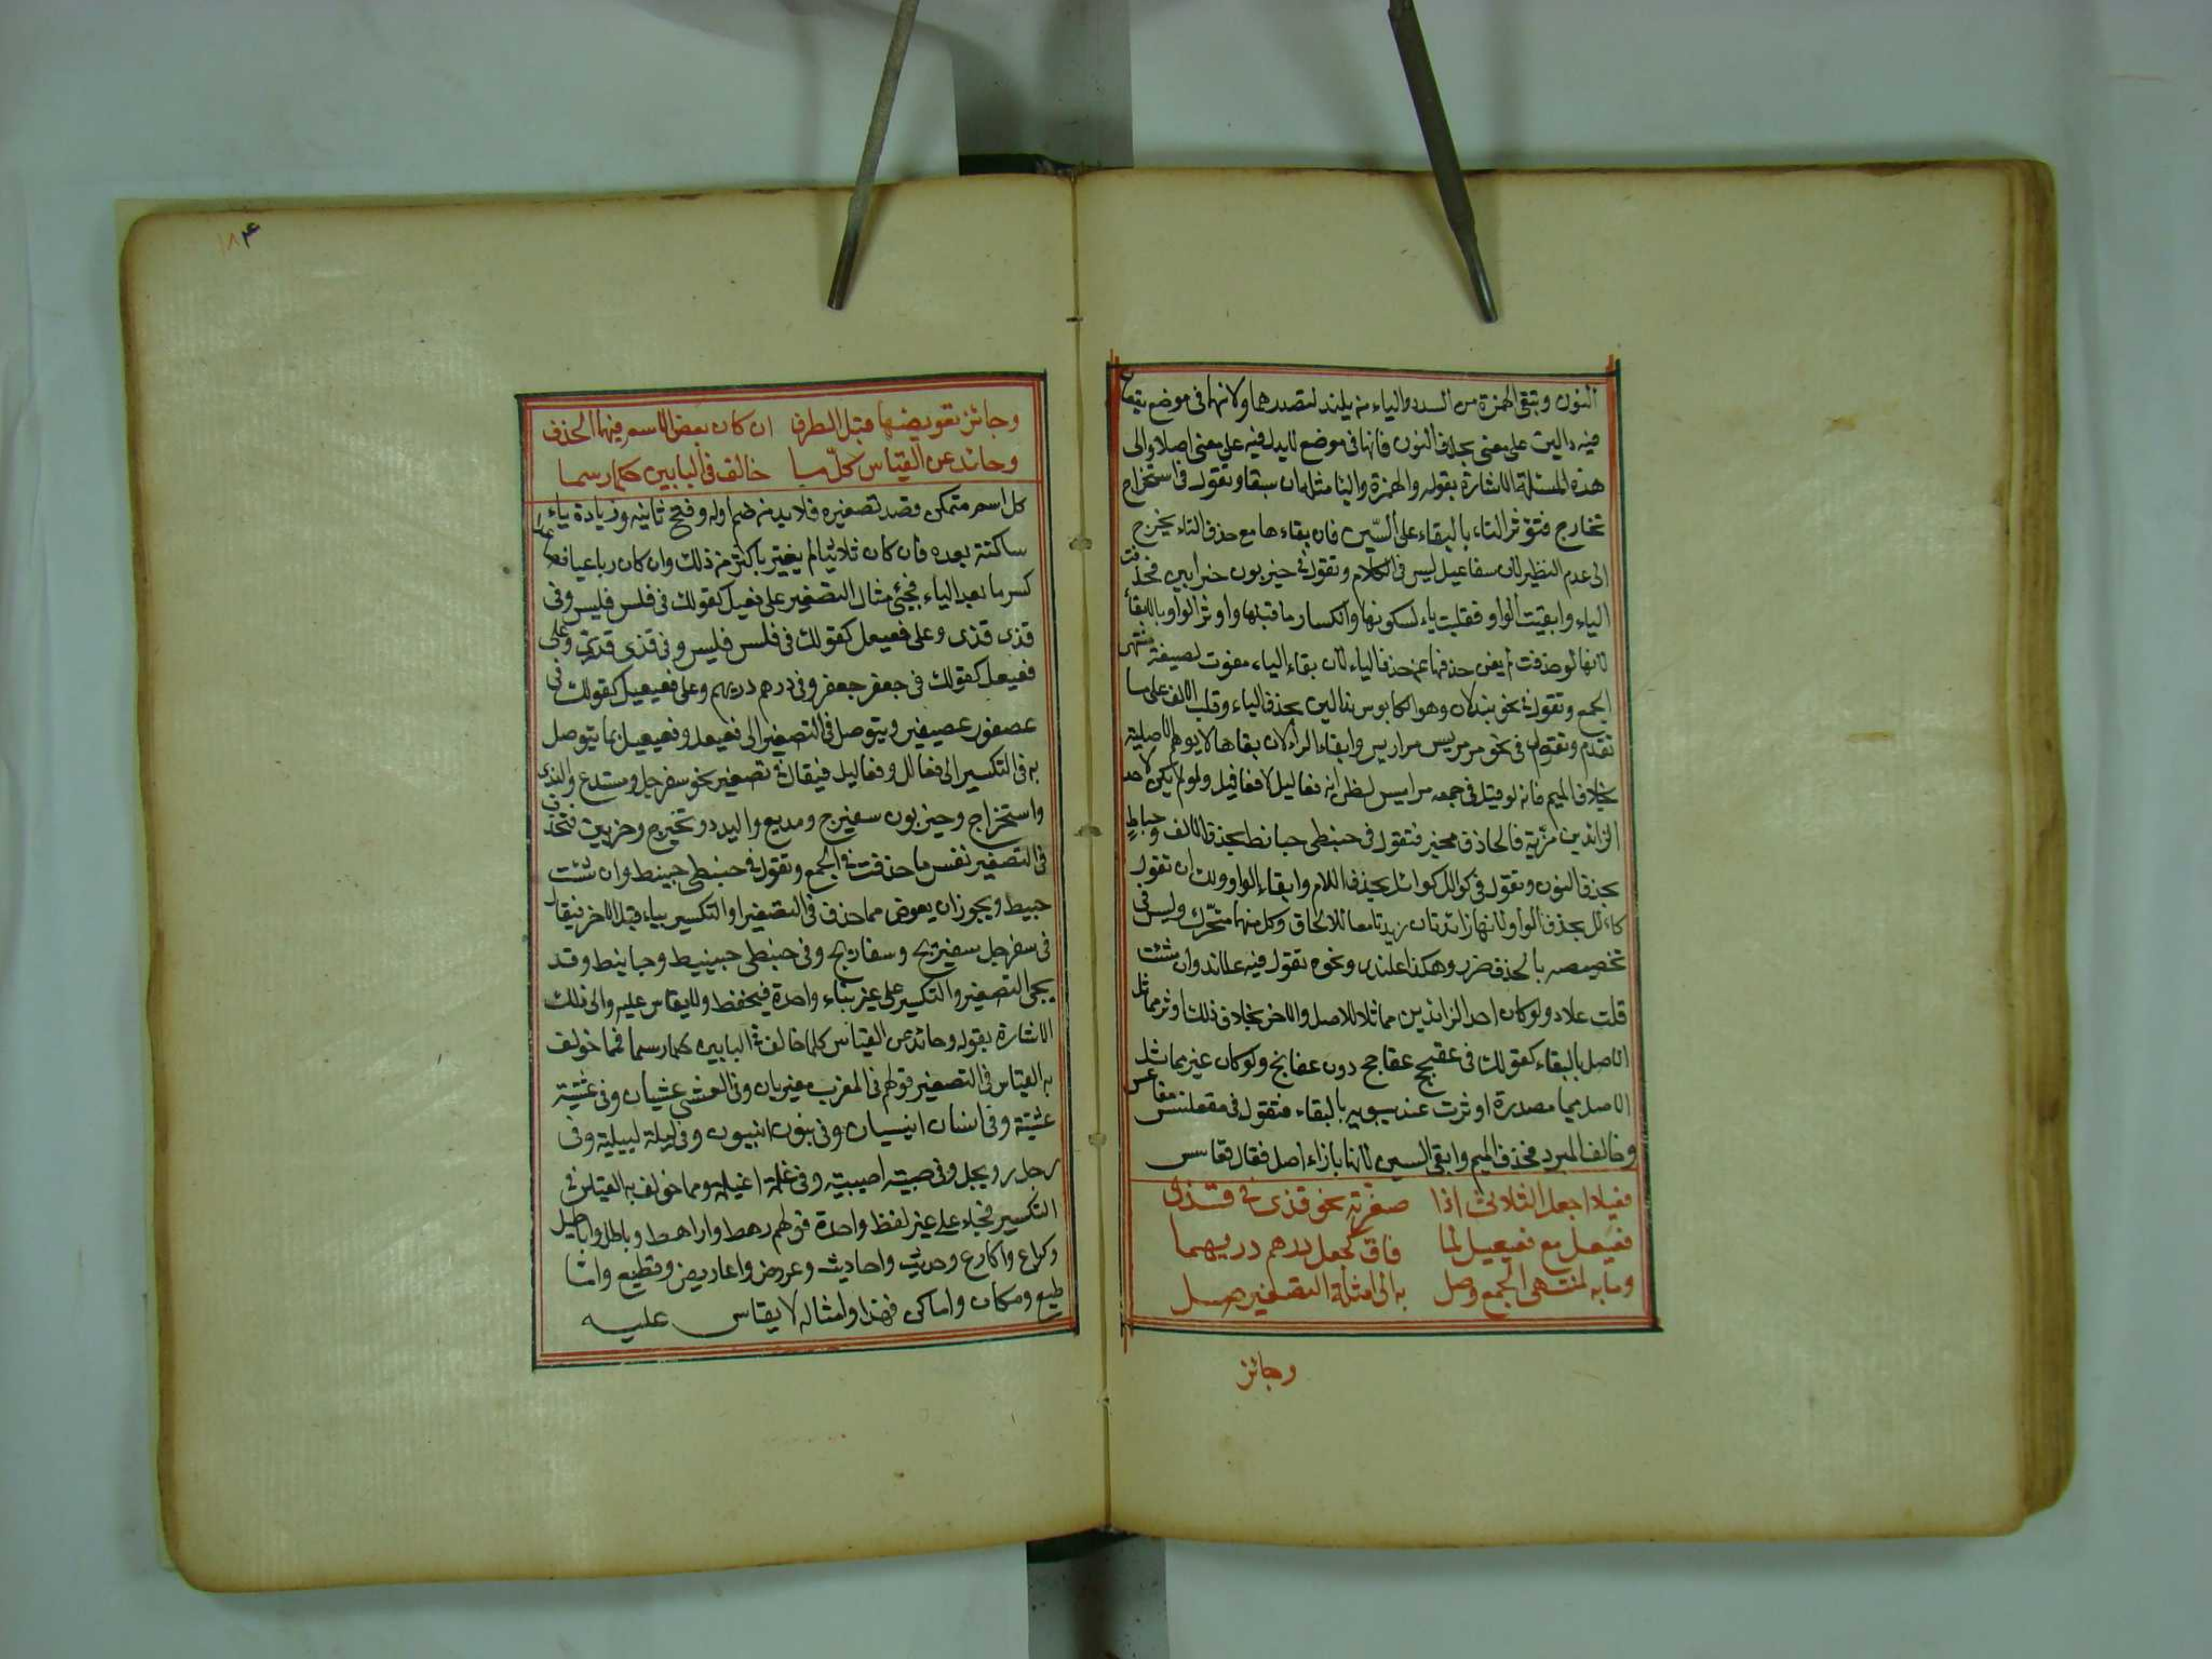 النون وتبقى الهمزة من الندد والياء من يلندد لتصدرهما ولانهما فى موضع يقعان
فيه دالين على معنى بخلاف النون فانها فى موضع لا يدل فيه على معنى اصلا والى
هذه المسئلة الاشارة بقوله والهمزة واليا مثله ان سبقا وتقول فى استخراج
تخارج فتؤثر التاء بالبقاء على السّين فان بقاءها مع حذف التاء يخرج
الى عدم النظير لان سفاعيل ليس فى الكلام وتقول فى حيزبون حزابين فحذفت
الياء وابقيت الواو فقلبت ياء لسكونها وانكسار ما قبلها واوثر الواو بالبقاء
لانها لو حذفت لم يغن حذفها عن حذف الياء لان بقاء الياء مفوت لصيغة منتهى
الجمع وتقول فى نحو نيدلان وهو الكابوس ندالين بحذف الياء وقلب الالف على ما
تقدم وتقول فى نحو مرمريس مراريس وابقاء الراء لان بقاها لا يوهم الاصلية
بخلاف الميم فانه لو قيل فى جمعه مراميس لظن انه فعاليل لا فعافيل ولو لم يكن لاحد
الزائدين مزّية فالحاذق مخير فتقول فى حبنطى حبانط بحذف الالف وحباطٍ
بحذف النون وتقول فى كوالل كوائل بحذف اللام وابقاء الواو ولك ان تقول
كاءلل بحذف الواو لانها زائدتان زيدتا معا للالحاق وكل منهما متحّرك وليس فى
تخصيصه بالحذف ضرر وهكذا علندى ونحوه تقول فيه علاند وان شئت
قلت علاد ولو كان احد الزائدين مماثلا للاصل والاخر بخلاف ذلك اوثر مماثل
الاصل بالبقاء كقولك فى عفنجج عفاجج دون عفانج ولو كان غير مماثل
الاصل ميما مصدرة اوثرت عند سيبويه بالبقاء فتقول فى مقعنسس مقاعس
وخالف المبرد فحذف الميم وابقى السين لانها بازاء اصل فقال قعاسس
فعيلا اجعل الثلاثى اذا صغرته نحو قذى فى قذى
فعيعل مع فعيعيل لما فاق كجعل درهم دريهما
وما به لمنتهى الجمع وصل به الى امثلة التصغير صل
وجائز
١٨٤
وجائز تعويضها قبل الطرف ان كان بعض الاسم فيهما انحذف
وحائد عن القياس كلّ ما خالف فى البابين حكما رسما
كل اسم متمكن قصد تصغيره فلا بد من ضم اوله وفتح ثانيه وزيادة ياء
ساكنة بعده فان كان ثلاثيا لم يغير باكثر من ذلك وان كان رباعيا فصاعدا
كسر ما بعد الياء فيجئ مثال التصغير على فعيل كقولك فى فلس فليس وفى
قذى قذى وعلى فعيعل كقولك فى فلس فليس وفى قذى قذى وعلى
فعيعل كقولك فى جعفر جعفر وفى درهم دريهم وعلى فعيعيل كقولك فى
عصفور عصيفير ويتوصل فى التصغير الى فعيعل وفعيعيل بما يتوصل
به فى التكسير الى فعالل وفعاليل فيقال فى تصغير نحو سفرجل ومستدع والندد
واستخراج وحيزبون سفيرج ومديع واليدد وتخيرج وحزيبين فتحذف
فى التصغير نفس ما حذفت فى الجمع وتقول فى حبنطى حبينط وان شئت
حبيط ويجوز ان يعوض مما حذف فى التصغير او التكسير بياء قبل الاخر فيقال
فى سفرجل سفيريج وسفاريج وفى حبنطى حبينيط وحبانيط وقد
يجى التصغير والتكسير على غير بناء واحدة فيحفظ ولا يقاس عليه والى ذلك
الاشارة بقوله وحائد عن القياس كلما خالف فى البابين حكما رسما فمما خولف
به القياس فى التصغير قولهم فى المغرب مغيربان وفى العشى عشيان وفى عشية
عشيشة وفى انسان انيسيان وفى بنون ابنيون وفى ليلة لييلية وفى
رجل رويجل وفى صبية اصيبية وفى غلمة اغيلمة ومما خولف به القياس فى
التكسير فجاء على غير لفظ واحدة قولهم رهط واراهط وباطل واباطيل
وكراع واكارع وحديث واحاديث وعروض واعاريض وقطيع واقا
طيع ومكان واماكن فهذا وامثاله لا يقاس عليه